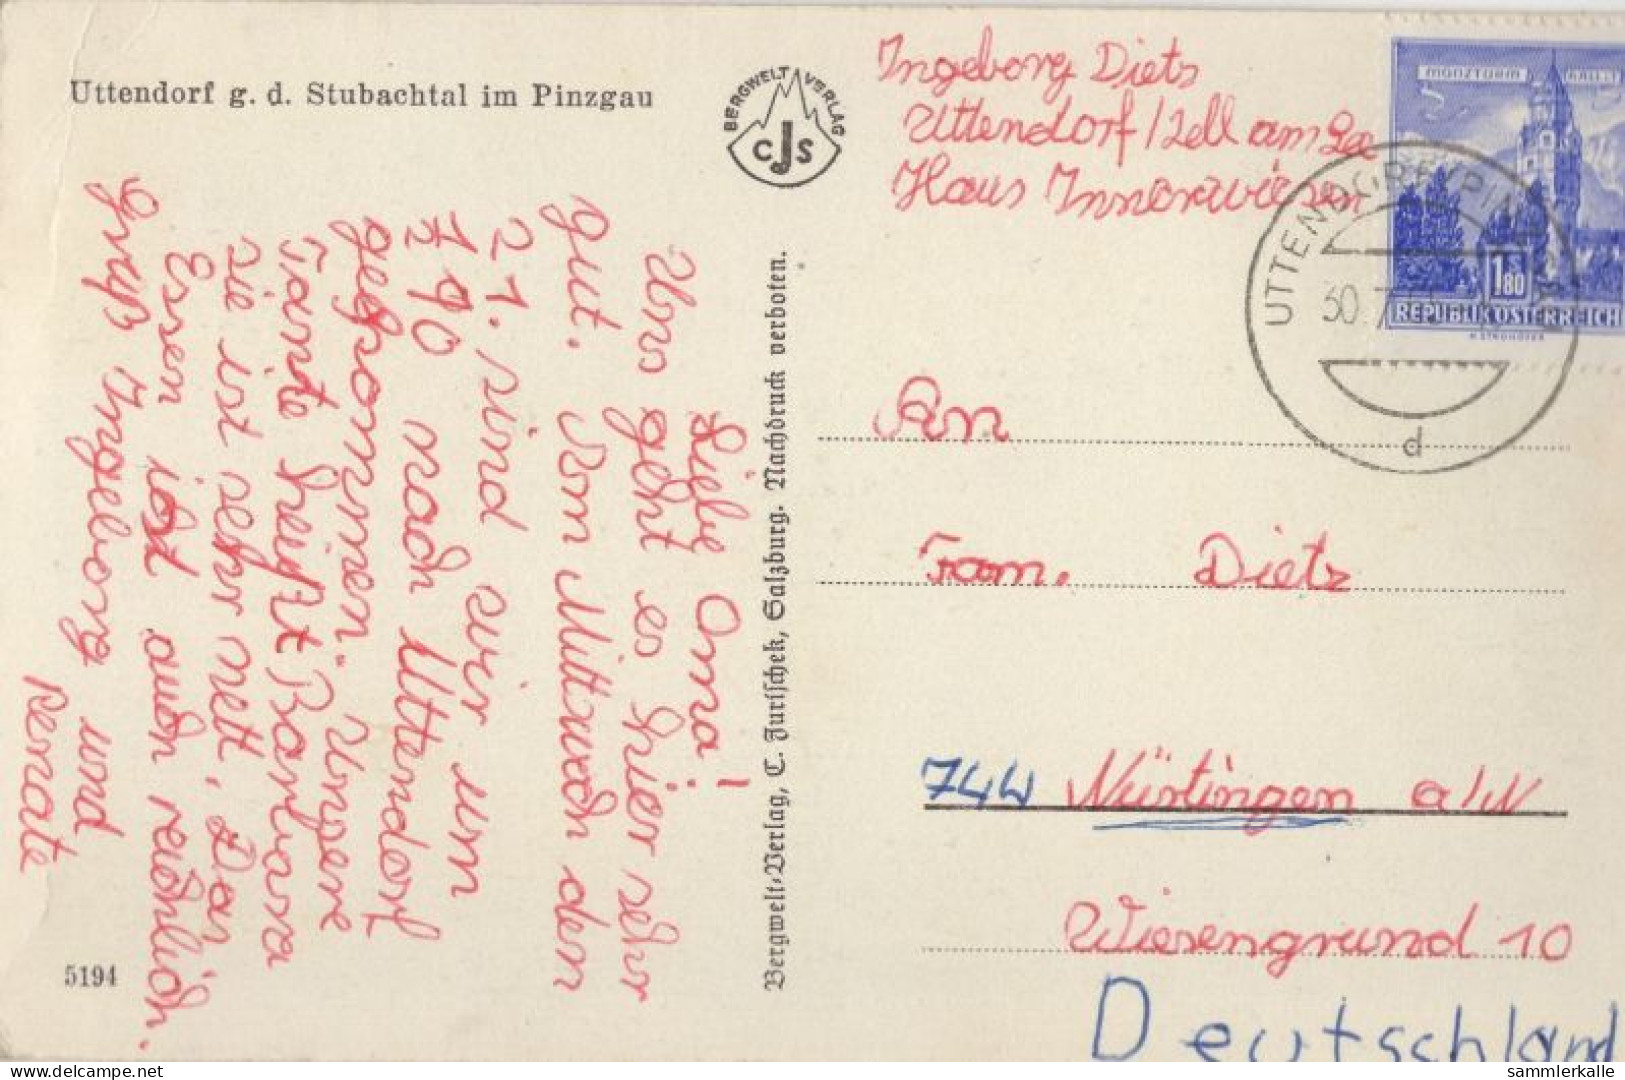 Uttendorf g. d. Stubachtal im Pinzgau
BERGWELT VERLAG
CJS
Ingeborg Dietz
Uttendorf / Zell am See
Haus Innerwiesen
MÜNZTURM HALL I.T.
S 1.80
REPUBLIK ÖSTERREICH
UTTENDORF, PINZGAU
30. 7.
d
Liebe Oma!
Uns geht es hier sehr
gut. Am Mittwoch den
21. sind wir um
½ 90 nach Uttendorf
gekommen. Unsere
Tante heißt Barbara
sie ist sehr nett. Das
Essen ist auch reichlich.
Gruß Ingeborg und
Renate
Bergwelt-Verlag, C. Jurischek, Salzburg. Nachdruck verboten.
5194
An
Fam. Dietz
744 Nürtingen a/N
Wiesengrund 10
Deutschland
sammlerkalle